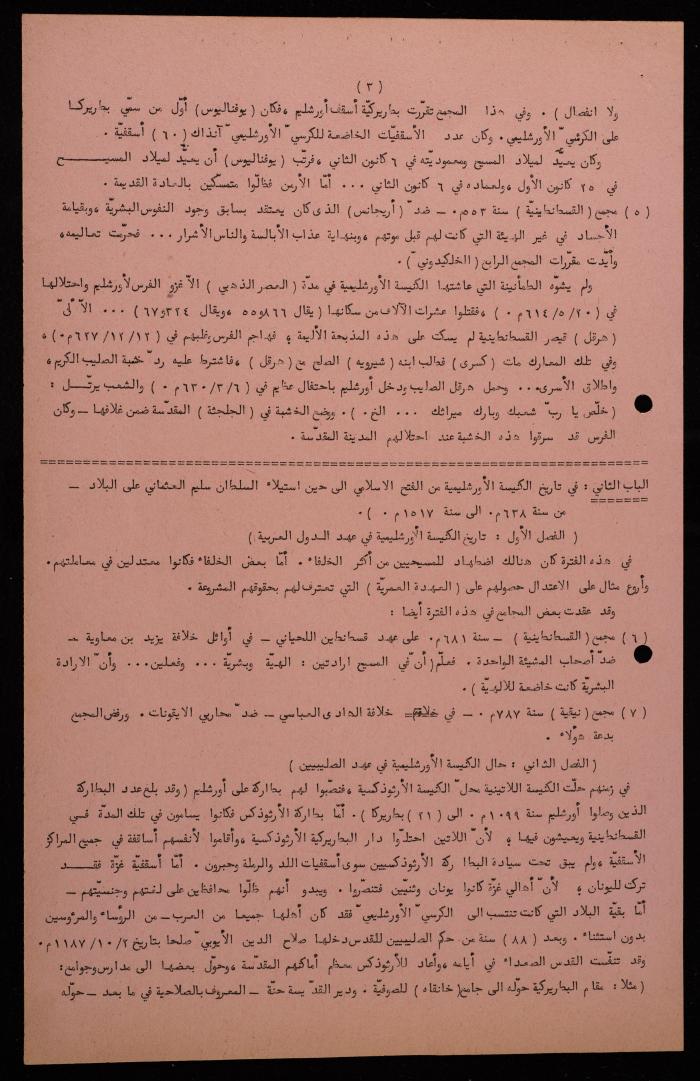 ( ٣ )
ولا انفصال ) . وفي هذا المجمع تقررت بطاريركيّة أسقف أورشليم ، فكان ( يوفناليوس ) أوّل من سمّي بطاريركا
على الكرسيّ الأورشليمي . وكان عدد الأسقفيّات الخاضعة للكرسيّ الأورشليميّ آنذاك ( ٦٠ ) أسقفيّة .
وكان يعيَّد لميلاد المسيح ومعموديّته في ٦ كانون الثاني ، فرتّب ( يوفناليوس ) أن يعيَّد لميلاد المسيح
في ٢٥ كانون الأول ، ولعماده في ٦ كانون الثاني ... أمّا الأرمن فظلّوا متمسّكين بالعادة القديمة .
( ٥ ) مجمع ( القسطنطينيّة ) سنة ٥٥٣م . - ضدّ ( أريجانس ) الذي كان يعتقد بسابق وجود النفوس البشريّة ، وبقيامة
الأجساد في غير الهيئة التي كانت لهم قبل موتهم ، وبنهاية عذاب الأبالسة والناس الأشرار ... فحرّمت تعاليمه ،
وأيّدت مقرّرات المجمع الرابع ( الخلكيدونيّ ) .
ولم يشوّه الطمأنينة التي عاشتها الكنيسة الأورشليمية في مدّة ( العصر الذهبي ) الاّ غزو الفرس لأورشليم واحتلالها
في ( ٢٠/ ٥/ ٦١٤م ) ، فقتلوا عشرات الآلاف من سكانها ( يقال ٨٦٦و٥٥ ، ويقال ٣٢٤و٦٧ ) ... الاّ أنّ
( هرقل ) قيصر القسطنطينية لم يسكت على هذه المذبحة الأليمة ؛ فهاجم الفرس وغلبهم في ( ١٢/ ١٢/ ٦٢٧م . ) ،
وفي تلك المعارك مات ( كسرى ) فطالب ابنه ( شيرويه ) الصلح مع ( هرقل ) ، فاشترط عليه ردّ خشبة الصليب الكريم ،
واطلاق الأسرى ... وحمل هرقل الصليب ودخل أورشليم باحتفال عظيم في ( ٦/ ٣/ ٦٣٠م . ) والشعب يرتّل :
( خلّص يا ربّ شعبك وبارك ميراثك ... الخ . ) . ووضع الخشبة في ( الجلجثة ) المقدّسة ضمن غلافها - وكان
الفرس قد سرقوا هذه الخشبة عند احتلالهم المدينة المقدّسة .
الباب الثاني : في تاريخ الكنيسة الأورشليمية من الفتح الاسلامي الى حين استيلاء السلطان سليم العثماني على البلاد -
من سنة ٦٣٨م . الى سنة ١٥١٧م . ) .
( الفصل الأول : تاريخ الكنيسة الأورشليمية في عهد الدول العربية )
في هذه الفترة كان هنالك اضطهاد للمسيحيين من أكثر الخلفاء . أمّا بعض الخلفاء فكانوا معتدلين في معاملتهم .
وأروع مثال على الاعتدال حصولهم على ( العهدة العمريّة ) التي تعترف لهم بحقوقهم المشروعة .
وقد عقدت بعض المجامع في هذه الفترة أيضا :
( ٦ ) مجمع ( القسطنطينية ) - سنة ٦٨١م . على عهد قسطنطين اللحياني - في أوائل خلافة يزيد بن معاوية -
ضدّ أصحاب المشيئة الواحدة . فعلّم ( أنّ في المسيح ارادتين : الهيّة وبشريّة ... وفعلين ... وأنّ الارادة
البشريّة كانت خاضعة للالهيّة ) .
( ٧ ) مجمع ( نيقية ) سنة ٧٨٧م . - في خلافة الهادى العباسي - ضدّ محاربي الايقونات . ورفض المجمع
بدعة هؤلاء .
( الفصل الثاني : حال الكنيسة الأورشليمية في عهد الصليبيين )
في زمنهم حلّت الكنيسة اللاتينية محلّ الكنيسة الأرثوذكسية ، فنصّبوا لهم بطاركة على أورشليم ( وقد بلغ عدد البطاركة
الذين وصلوا أورشليم سنة ١٠٩٩م . الى ( ٢١ ) بطريركا ) . أمّا بطاركة الأرثوذكس فكانوا يسامون في تلك المدّة في
القسطنطينية ويعيشون فيها ؛ لأنّ اللاتين احتلّوا دار البطريركية الأرثوذكسية ، وأقاموا لأنفسهم أساقفة في جميع المراكز
الأسقفية ، ولم يبق تحت سيادة البطاركة الأرثوذكسيين سوى أسقفيات اللد والرملة وحبرون . أمّا أسقفية غزّة فقد
ترك لليونان ؛ لأنّ أهالي غزّة كانوا يونان وثنيّين فتنصّروا . ويبدو أنهم ظلّوا محافظين على لغتهم وجنسيّتهم -
أمّا بقيّة البلاد التي كانت تنتسب الى الكرسيّ الأورشليميّ فقد كان أهلها جميعا من العرب - من الرؤساء والمرءوسين
بدون استثناء . وبعد ( ٨٨ ) سنة من حكم الصليبيين للقدس دخلها صلاح الدين الأيوبيّ صلحا بتاريخ ٢/ ١٠/ ١١٨٧م .
وقد تنفّست القدس الصعداء في أيامه ، وأعاد للأرثوذكس معظم أماكنهم المقدّسة ، وحوّل بعضها الى مدارس وجوامع :
( مثلا : مقام البطريركية حوّله الى جامع ( خانقاه ) للصوفيّة . ودير القدّيسة حنّة - المعروف بالصلاحية في ما بعد - حوّله